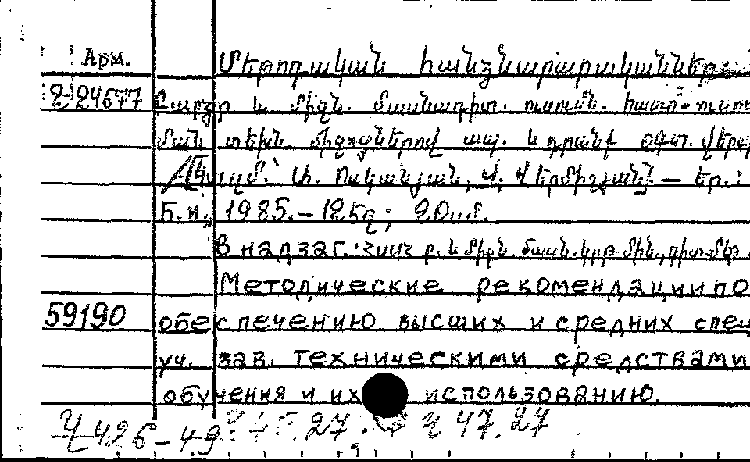 Арм. Մեթոդական հանձնարարականներ
2-24677 Բարձր և միջն. մասնագիտ. ուսումն. հաստ-ուտ
ման տեխն. միջոցներով ապ. և դրանց օգտ. վերաբ
Ա. Ոսկանյան, Վ. Վերմիշյան] — Եր.:
Б.и., 1985. – 12 եջ; 20 սմ.
В надзаг.: ՀՍՍՀ բ. և միջն. մասն. կրթ. մին.,
Методические рекомендации по
59190 обеспечению высших и средних спец
уч. зав. техническими средствами
обучения и их использованию.
Ч 426-4.9 27. Ч 47.27